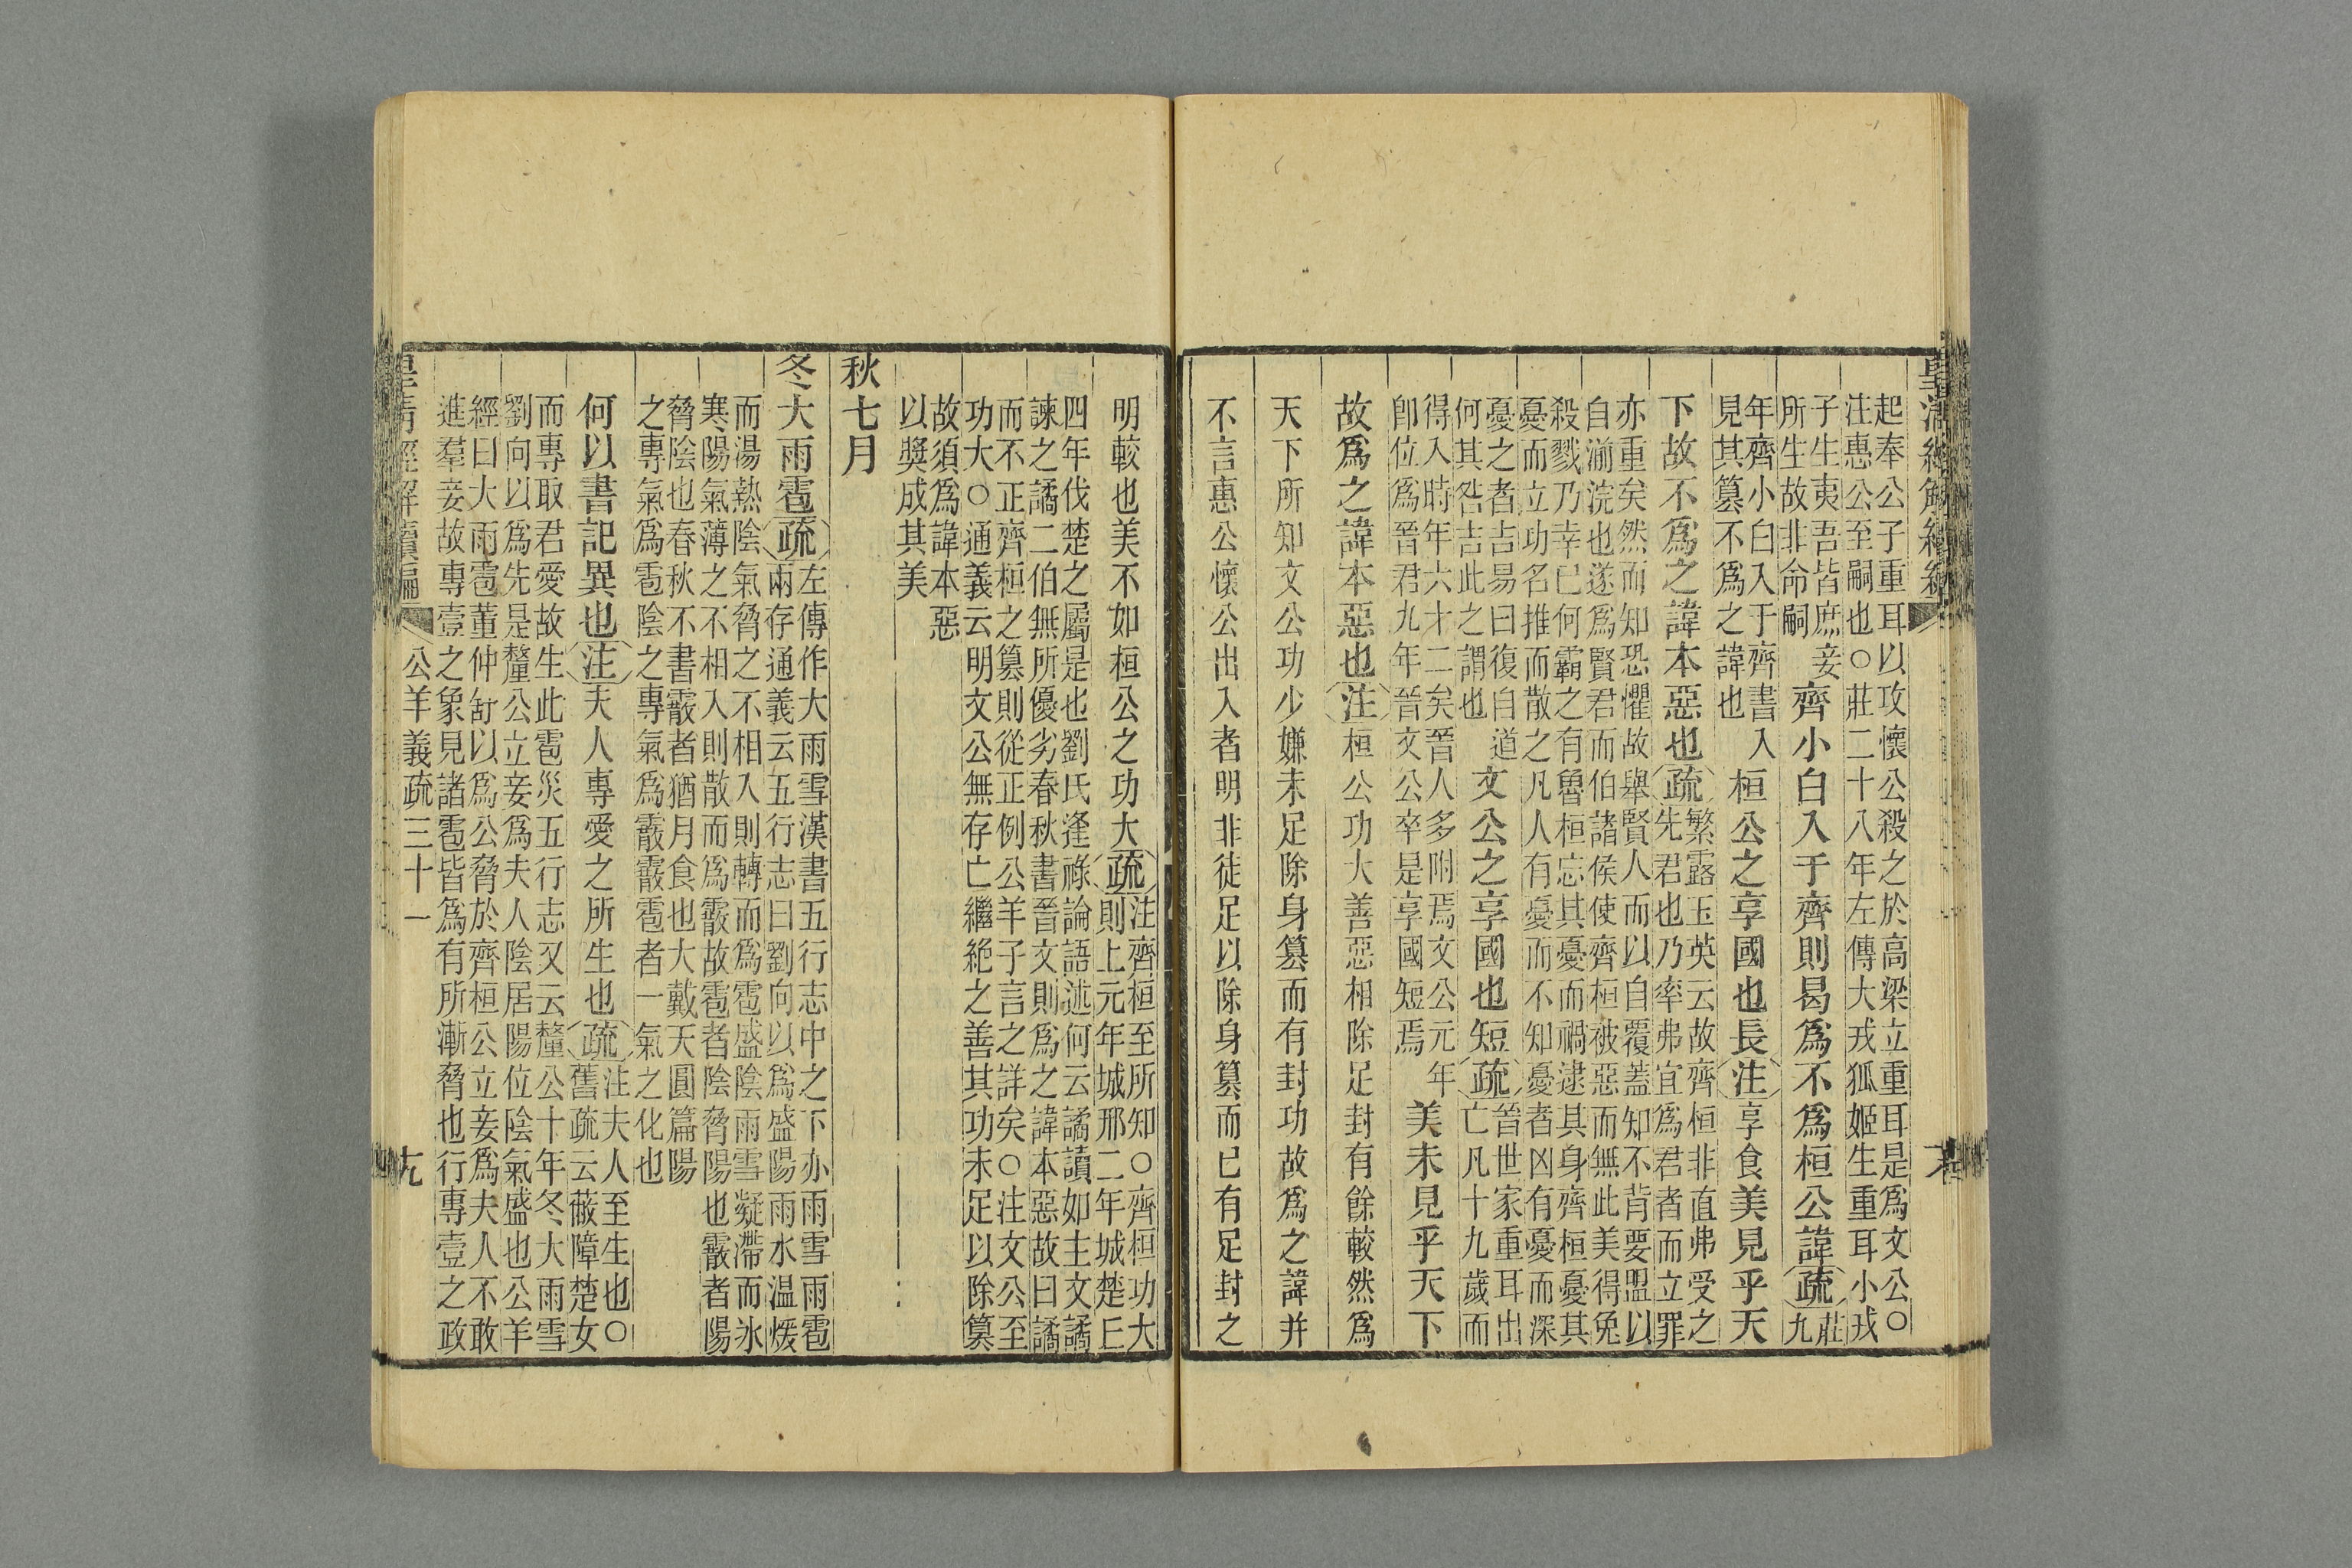 皇清經解續編
起奉公子重耳以攻懷公殺之於高梁立重耳是爲文公○
注惠公至嗣也○莊二十八年左傳大戎狐姬生重耳小戎
子生夷吾皆庶妾
所生故非命嗣
齊小白入于齊則曷爲不爲桓公諱
疏
莊
九
年齊小白入于齊書入
見其篡不爲之諱也
桓公之享國也長
注
享食美見乎天
下故不爲之諱本惡也
疏
繁露玉英云故齊桓非直弗受之
先君也乃率弗宜爲君者而立罪
亦重矣然而知恐懼故舉賢人而以自覆蓋知不背要盟以
自湔浣也遂爲賢君而伯諸侯使齊桓被惡而無此美得免
殺戮乃幸已何霸之有魯桓忘其憂而禍逮其身齊桓憂其
憂而立功名推而散之凡人有憂而不知憂者凶有憂而深
憂之者吉易曰復自道
何其咎吉此之謂也
文公之享國也短
疏
晉世家重耳出
亡凡十九歲而
得入時年六才二矣晉人多附焉文公元年
卽位爲晉君九年晉文公卒是享國短焉
美未見乎天下
故爲之諱本惡也
注
桓公功大善惡相除足封有餘較然爲
天下所知文公功少嫌未足除身篡而有封功故爲之諱并
不言惠公懷公出入者明非徒足以除身篡而已有足封之
明較也美不如桓公之功大
疏
注齊桓至所知○齊桓功大
則上元年城邢二年城楚丘
四年伐楚之屬是也劉氏逢祿論語述何云譎讀如主文譎
諫之譎二伯無所優劣春秋書晉文則爲之諱本惡故曰譎
而不正齊桓之篡則從正例公羊子言之詳矣○注文公至
功大○通義云明文公無存亡繼絶之善其功未足以除篡
故須爲諱本惡
以奬成其美
秋七月
冬大雨雹
疏
左傳作大雨雪漢書五行志中之下亦雨雪雨雹
兩存通義云五行志曰劉向以爲盛陽雨水温煖
而湯熱陰氣脅之不相入則轉而爲雹盛陰雨雪凝滯而氷
寒陽氣薄之不相入則散而爲霰故雹者陰脅陽也霰者陽
脅陰也春秋不書霰者猶月食也大戴天圓篇陽
之專氣爲雹陰之專氣爲霰霰雹者一氣之化也
何以書記異也
注
夫人專愛之所生也
疏
注夫人至生也○
舊疏云蔽障楚女
而專取君愛故生此雹災五行志又云釐公十年冬大雨雪
劉向以爲先是釐公立妾爲夫人陰居陽位陰氣盛也公羊
經曰大雨雹董仲舒以爲公脅於齊桓公立妾爲夫人不敢
進羣妾故專壹之象見諸雹皆爲有所漸脅也行專壹之政
皇清經解續編
公羊義疏三十一